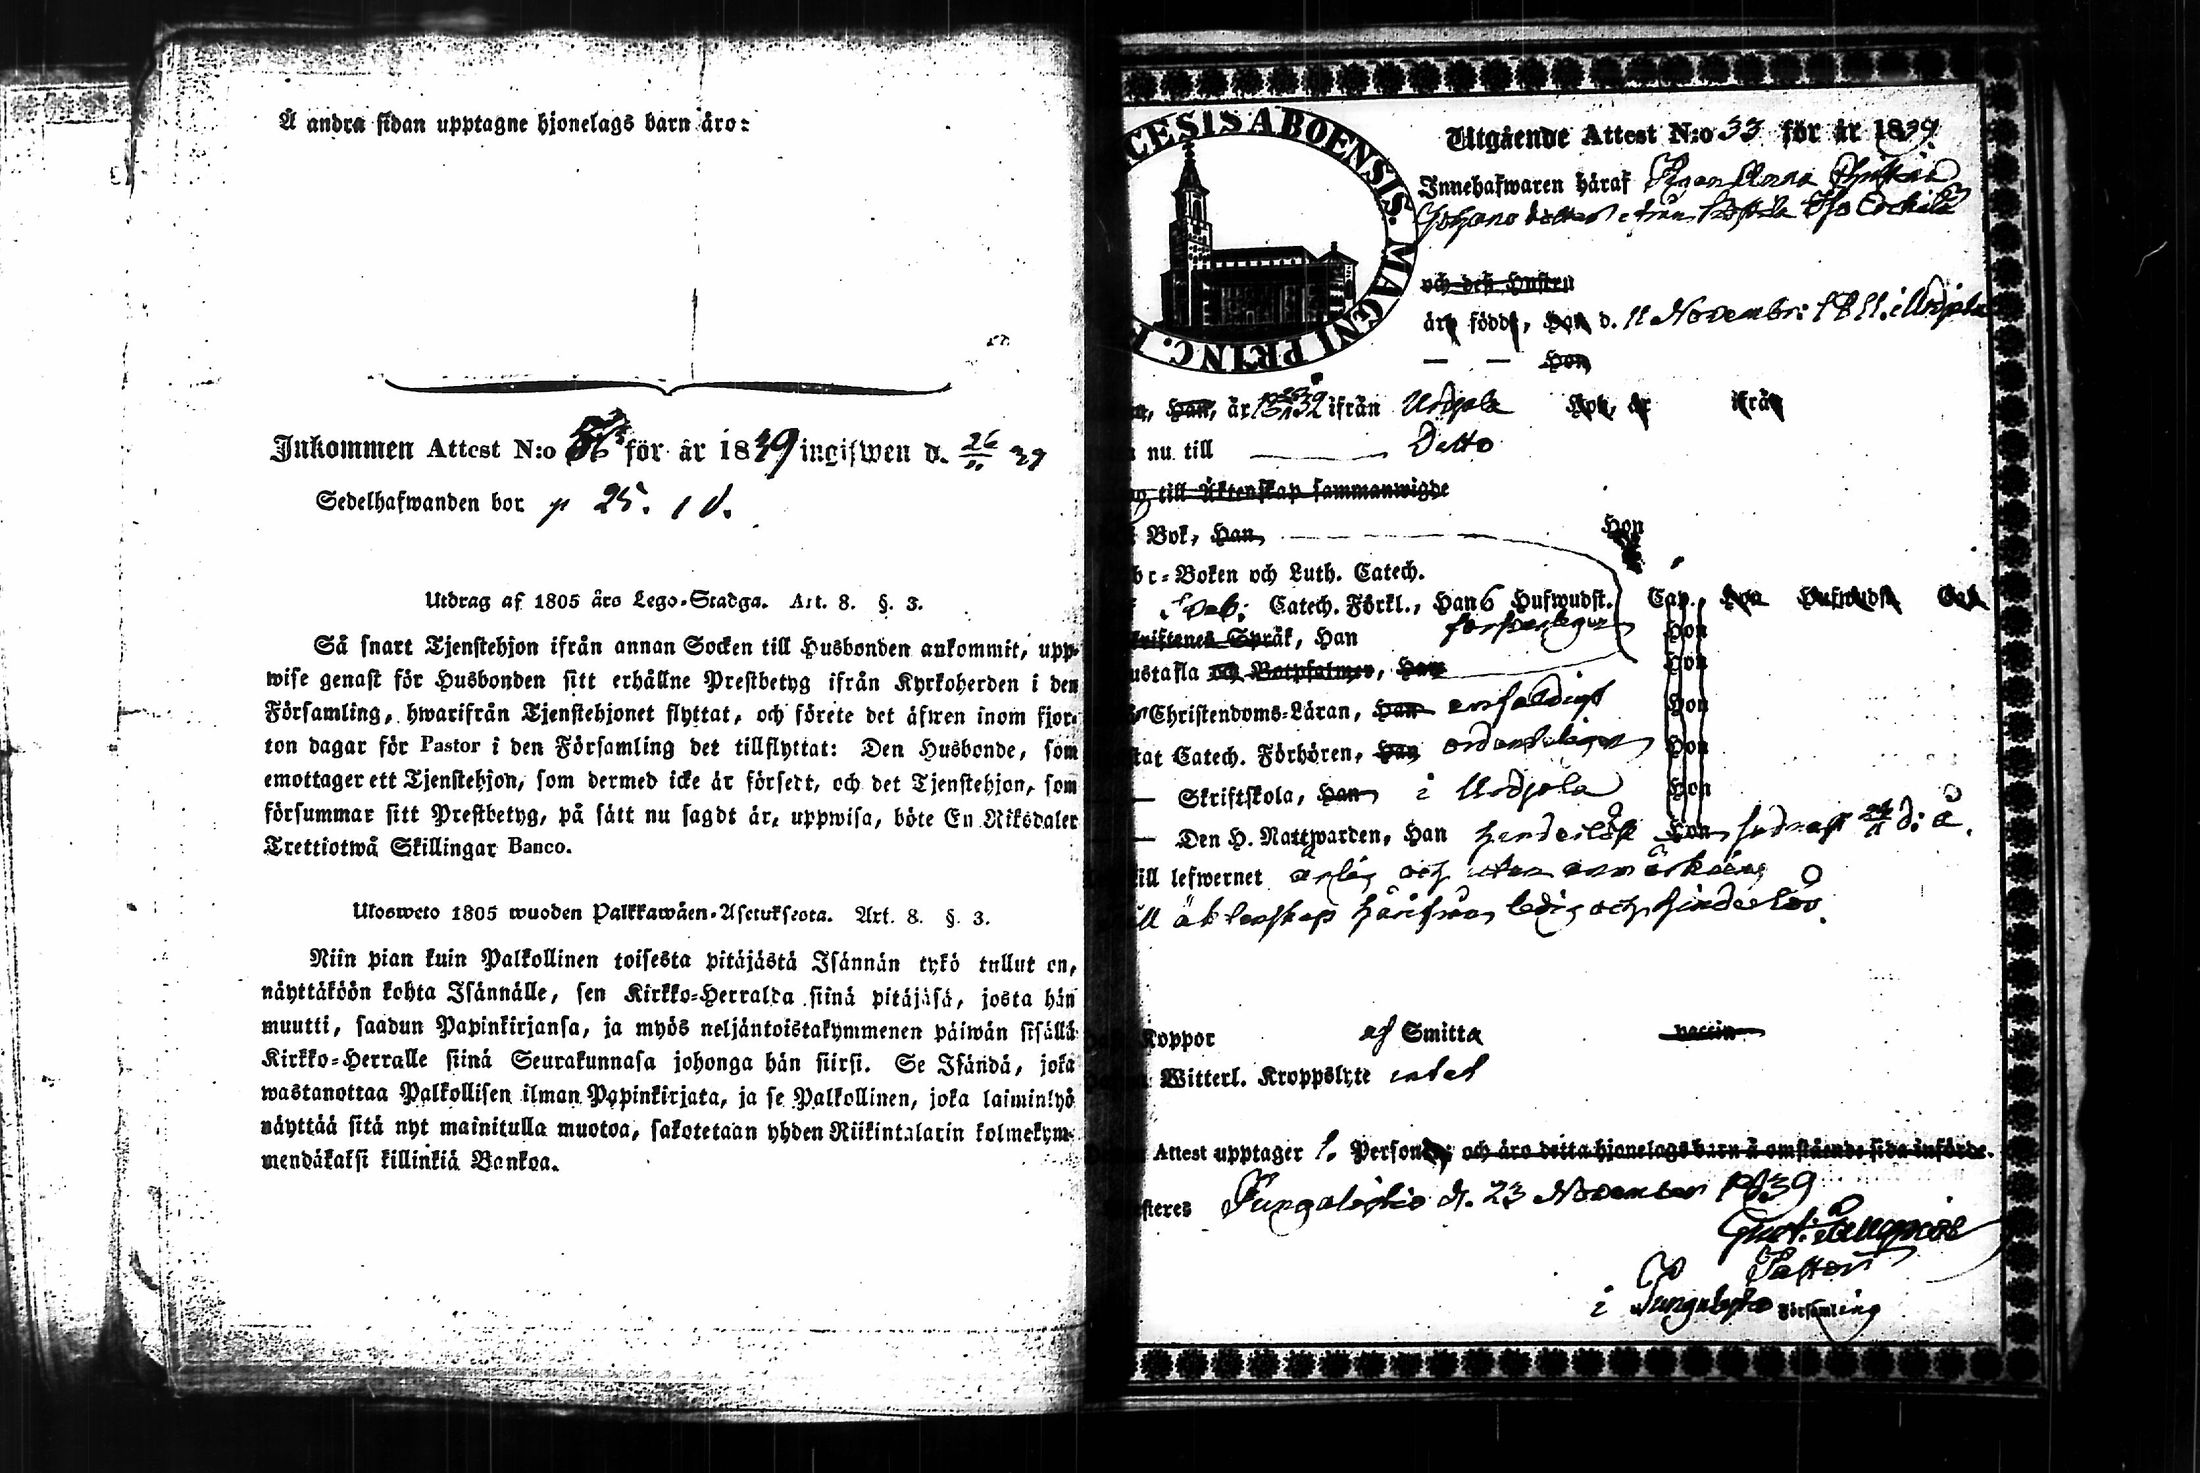 Å andra sidan upptagne hjonelags barn äro:
Inkommen Attest N:o för år 1839 ingifwen d. 26/11 39
Sedelhafwanden bor p 25.
Utdrag af 1805 års Lego-Stadga. Art. 8. §. 3.
Så snart Tjenstehjon ifrån annan Socken till Husbonden ankommit, upp-
wise genast för Husbonden sitt erhållne Prestbetyg ifrån Kyrkoherden i den
Församling, hwarifrån Tjenstehjonet flyttat, och förete det äfwen inom fjor-
ton dagar för Pastor i den Församling det tillflyttat: Den Husbonde, som
emottager ett Tjenstehjon, som dermed icke är försedt, och det Tjenstehjon, som
försummar sitt Prestbetyg, på sätt nu sagdt är, uppwisa, böte En Riksdaler
Trettiotwå Skillingar Banco.
Ulosweto 1805 wuoden Palkkawäen-Asetuksesta. Art. 8. §. 3.
Niin pian kuin Palkollinen toisesta pitäjästä Isännän tykö tullut on,
näyttäköön kohta Isännälle, sen Kirkko-Herralda siinä pitäjäsä, josta hän
muutti, saadun Papinkirjansa, ja myös neljäntoistakymmenen päiwän sisällä
Kirkko-Herralle siinä Seurakunnasa johonga hän siirsi. Se Isändä, joka
wastanottaa Palkollisen ilman Papinkirjata, ja se Palkollinen, joka laiminlyö
näyttää sitä nyt mainitulla muotoa, sakotetaan yhden Riikintalarin kolmekym-
mendäkaksi killinkiä Bankoa.
CESIS ABOENSIS. MAGNI PRINC. F
Utgående Attest N:o 33 för år 1839
Innehafwaren häraf Pigan Anna
Johans dotter från
och deß Hustru
äro födde, Han d. 11 Novembr: 1811 i Urdjala
— — Hon
Han, är ifrån Urdjala Hon, är ifrån
nu till Ditto
till Äktenskap sammanwigde
Bok, Han, Hon
Boken och Luth. Catech.
Catech. Förkl., Han 6 Hufwudst. Cap., Hon Hufwudst. Cap.
Språk, Han Hon
ustafla och Botpsalmer, Han Hon
Christendoms-Läran, Han enfaldigt Hon
tat Catech. Förhören, Han ordenteligen Hon
— Skriftskola, Han i Urdjala Hon
— Den H. Nattwarden, Han Hon sednast 24/11 d: å.
till lefwernet ärlig och utan anmärkning
till äktenskap härifrån ledig och hinderlös.
Koppor af Smitta vaccin
Witterl. Kroppslyte intet
Attest upptager 1. Personer och äro detta hjonelags barn å omstående sida införde.
Jungalaitio d. 23 November 1839
Gust:
Pastor
i Församling